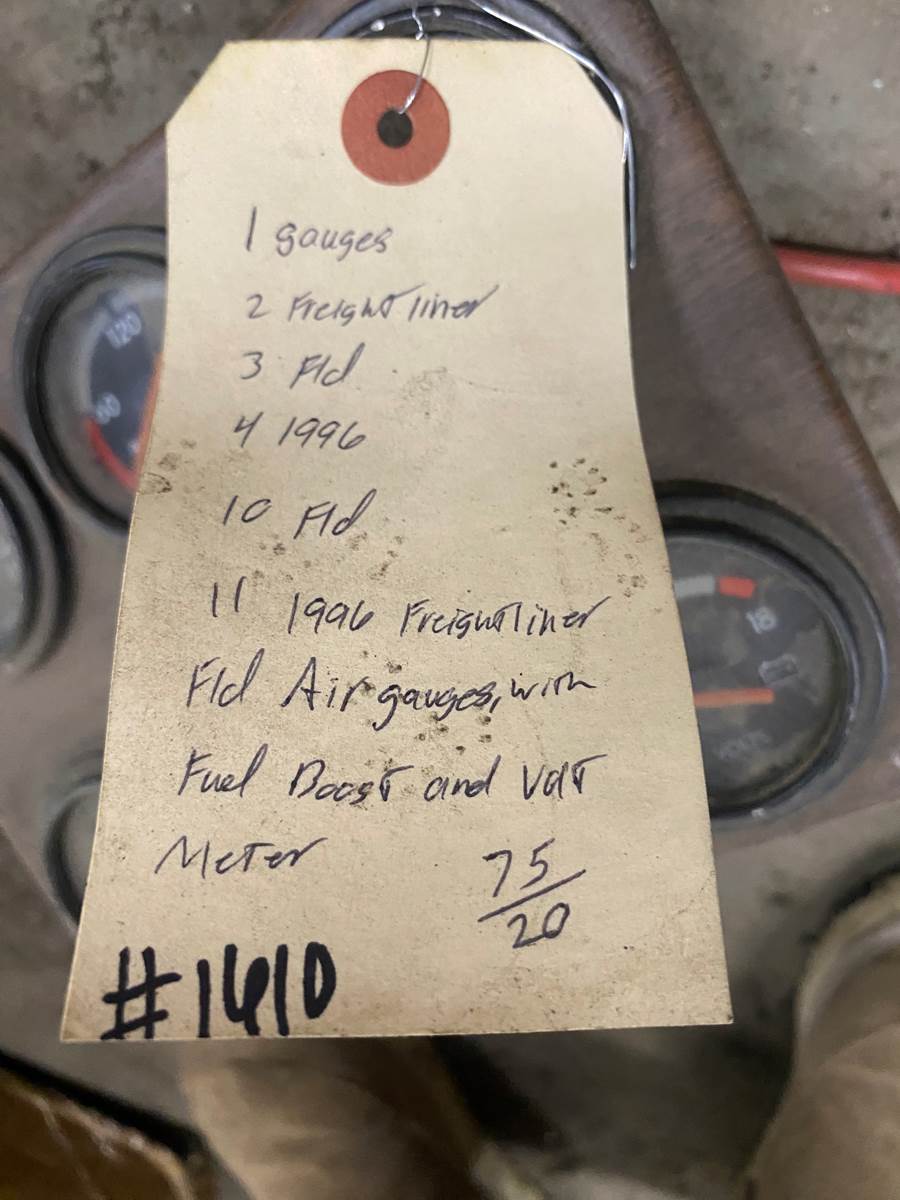 1 gauges
2 Freightliner
3 Fld
4 1996
10 Fld
11 1996 Freightliner
Fld Air gauges, with
Fuel Boost and Volt
Meter
75/20
#1610
120
60
18
VOLTS